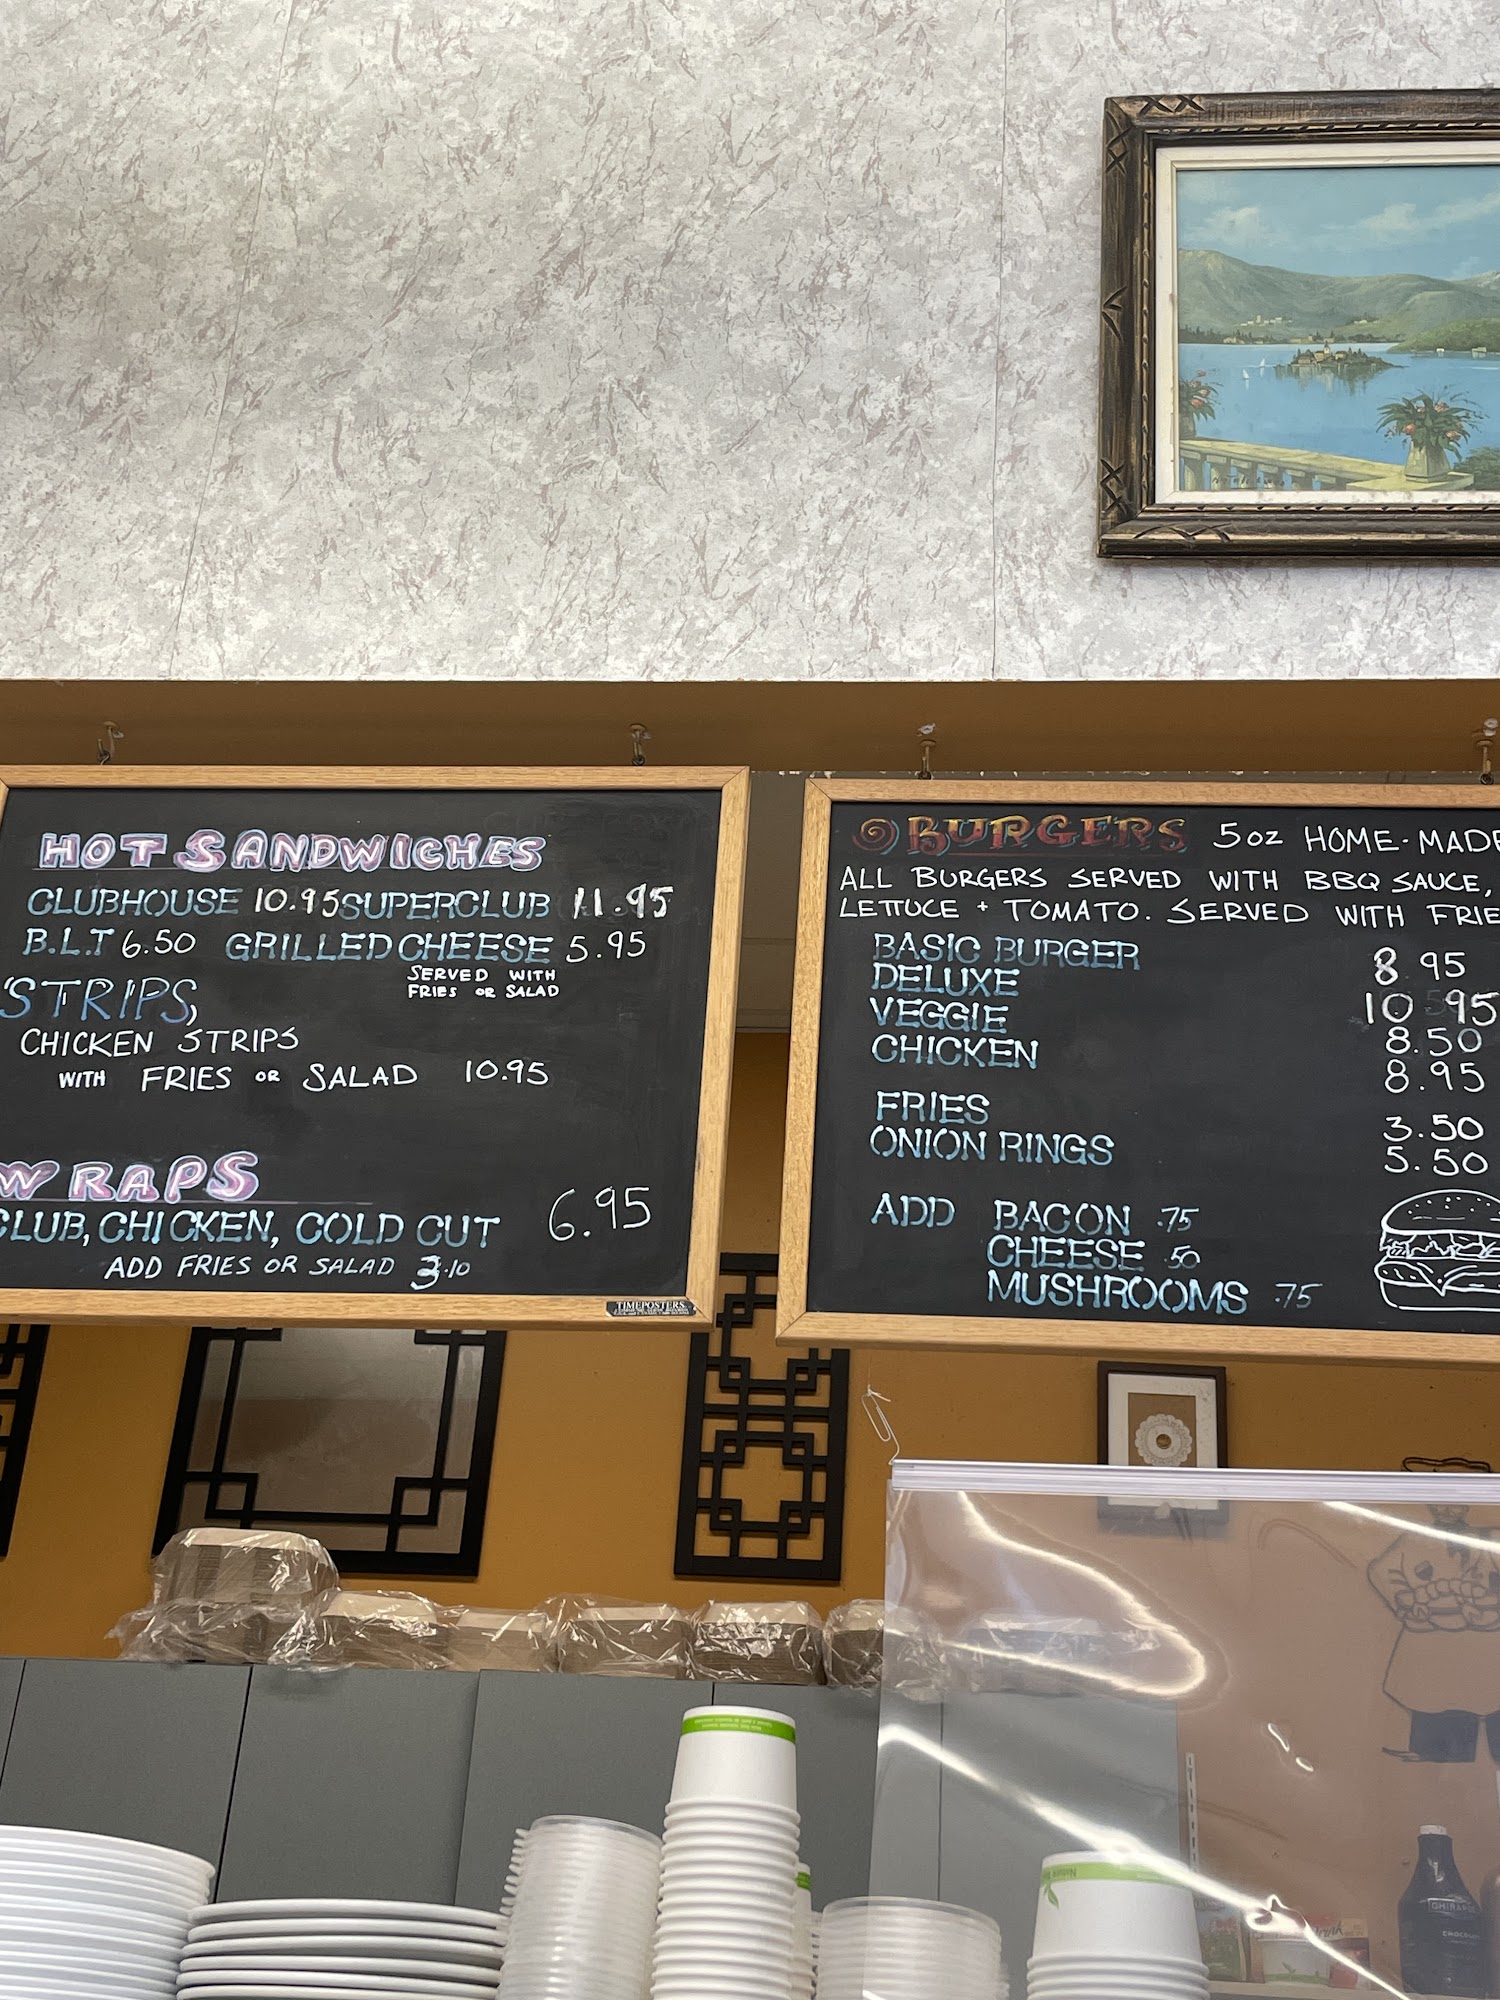 HOT SANDWICHES
CLUBHOUSE 10.95 SUPERCLUB 11.95
B.L.T 6.50 GRILLED CHEESE 5.95
SERVED WITH
FRIES OR SALAD
STRIPS,
CHICKEN STRIPS
WITH FRIES OR SALAD 10.95
WRAPS
CLUB, CHICKEN, COLD CUT 6.95
ADD FRIES OR SALAD 3.10
TIMEPOSTERS
BURGERS 5oz HOME-MADE
ALL BURGERS SERVED WITH BBQ SAUCE,
LETTUCE + TOMATO. SERVED WITH FRIE
BASIC BURGER 8.95
DELUXE 10.95
VEGGIE 8.50
CHICKEN 8.95
FRIES 3.50
ONION RINGS 5.50
ADD BACON .75
CHEESE .50
MUSHROOMS .75